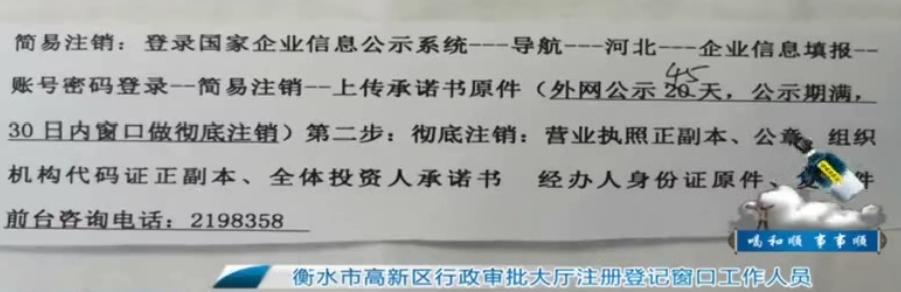 简易注销：登录国家企业信息公示系统---导航---河北---企业信息填报--
账号密码登录--简易注销--上传承诺书原件（外网公示20天，公示期满，
45
30日内窗口做彻底注销）第二步：彻底注销：营业执照正副本、公章 组织
机构代码证正副本、全体投资人承诺书 经办人身份证原件、复 件
前台咨询电话：2198358
喝和顺 事事顺
衡水市高新区行政审批大厅注册登记窗口工作人员